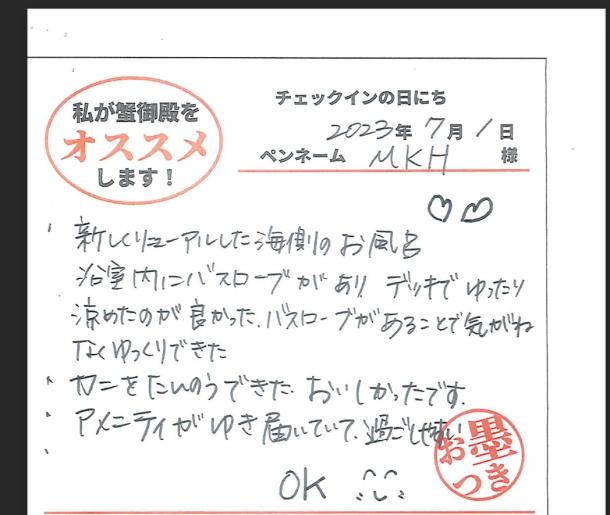 私が蟹御殿を
オススメ
します！
チェックインの日にち
2023年 7月 1日
ペンネーム MKH 様
・新しくリューアルした海側のお風呂
浴室内にバスローブがあり デッキでゆったり
涼めたのが良かった、バスローブがあることで気がね
なくゆっくりできた
・カニをたんのうできた。おいしかったです。
・アメニティがゆき届いていて、過ごしやすい
・
OK
お墨
つき